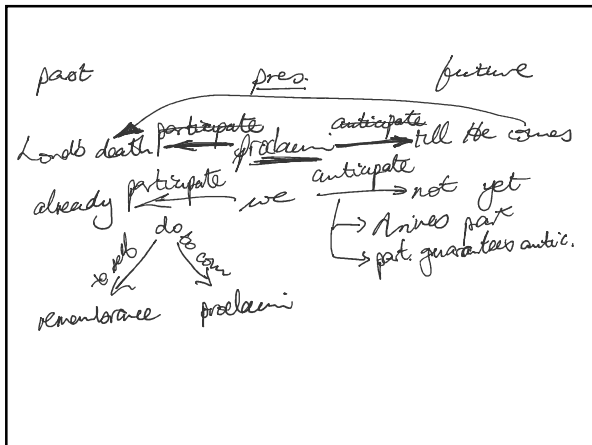 past pres. future
Lord's death participate proclaim anticipate till He comes
already participate we anticipate not yet
do
→ drives part
→ part. guarantees antic.
to self to com
remembrance proclaim